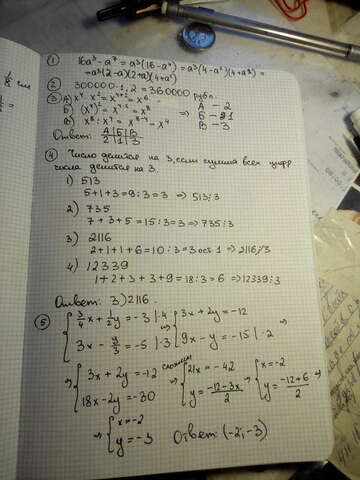 ① 16a³-a⁷ = a³(16-a⁴) = a³(4-a²)(4+a²) =
= a³(2-a)(2+a)(4+a²)
② 300000·1,2 = 360000 рубл.
③ А) x⁴·x² = x⁴⁺² = x⁶ А - 2
Б) (x⁴)² = x⁴·² = x⁸ ⇒ Б - 1
В) x⁸:x⁴ = x⁸⁻⁴ = x⁴ В - 3
Ответ: А|Б|В
2|1|3
④ Число делится на 3, если сумма всех цифр
числа делится на 3.
1) 513
5+1+3=9:3=3 ⇒ 513⋮3
2) 735
7+3+5=15:3=3 ⇒ 735⋮3
3) 2116
2+1+1+6=10:3=3 ост 1 ⇒ 2116⋮̸3
4) 12339
1+2+3+3+9=18:3=6 ⇒ 12339⋮3
Ответ: 3) 2116.
⑤ { 3/4x + 1/2y = -3 |·4 ⇒ { 3x+2y = -12 ⇒
3x - y/3 = -5 |·3 9x-y = -15 |·2
⇒ { 3x+2y = -12 сложим ⇒ { 21x = -42 ⇒ { x=-2 ⇒
18x-2y = -30 y = (-12-3x)/2 y = (-12+6)/2
⇒ { x=-2
y=-3 Ответ: (-2; -3)